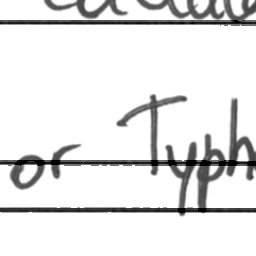 or Typh